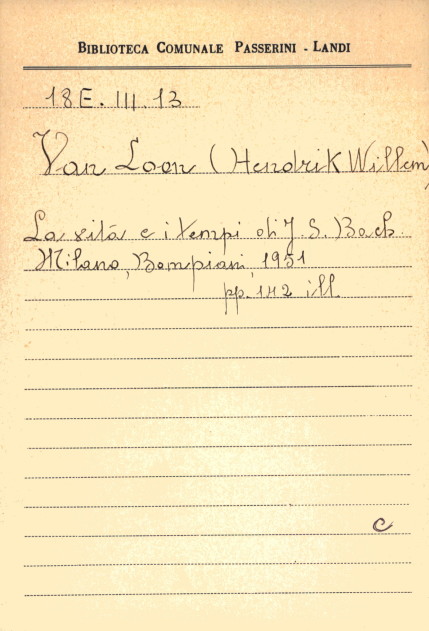 BIBLIOTECA COMUNALE PASSERINI - LANDI
18E. III. 13
Van Loon (Hendrik Willem)
La vita e i tempi di J. S. Bach.
Milano, Bompiani, 1951
pp. 142 ill
C